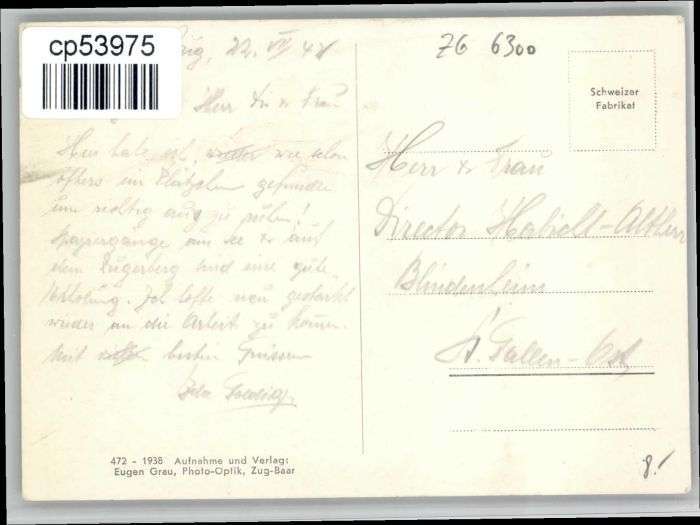 cp53975
22. VII 42
ZG 6300
Schweizer
Fabrikat
Herr Dir & Frau
Hier habe ich, wie schon
öfters ein Plätzchen gefunden
um richtig aus zu ruhen!
Spaziergänge am See & auf
dem Zugerberg sind eine gute
Erholung. Ich hoffe neu gestärkt
wieder an die Arbeit zu können.
Mit besten Grüssen
Herr & Frau
Director Habicht-Altherr
Blindenheim
St. Gallen-Ost
472 - 1938 Aufnahme und Verlag:
Eugen Grau, Photo-Optik, Zug-Baar
8.-